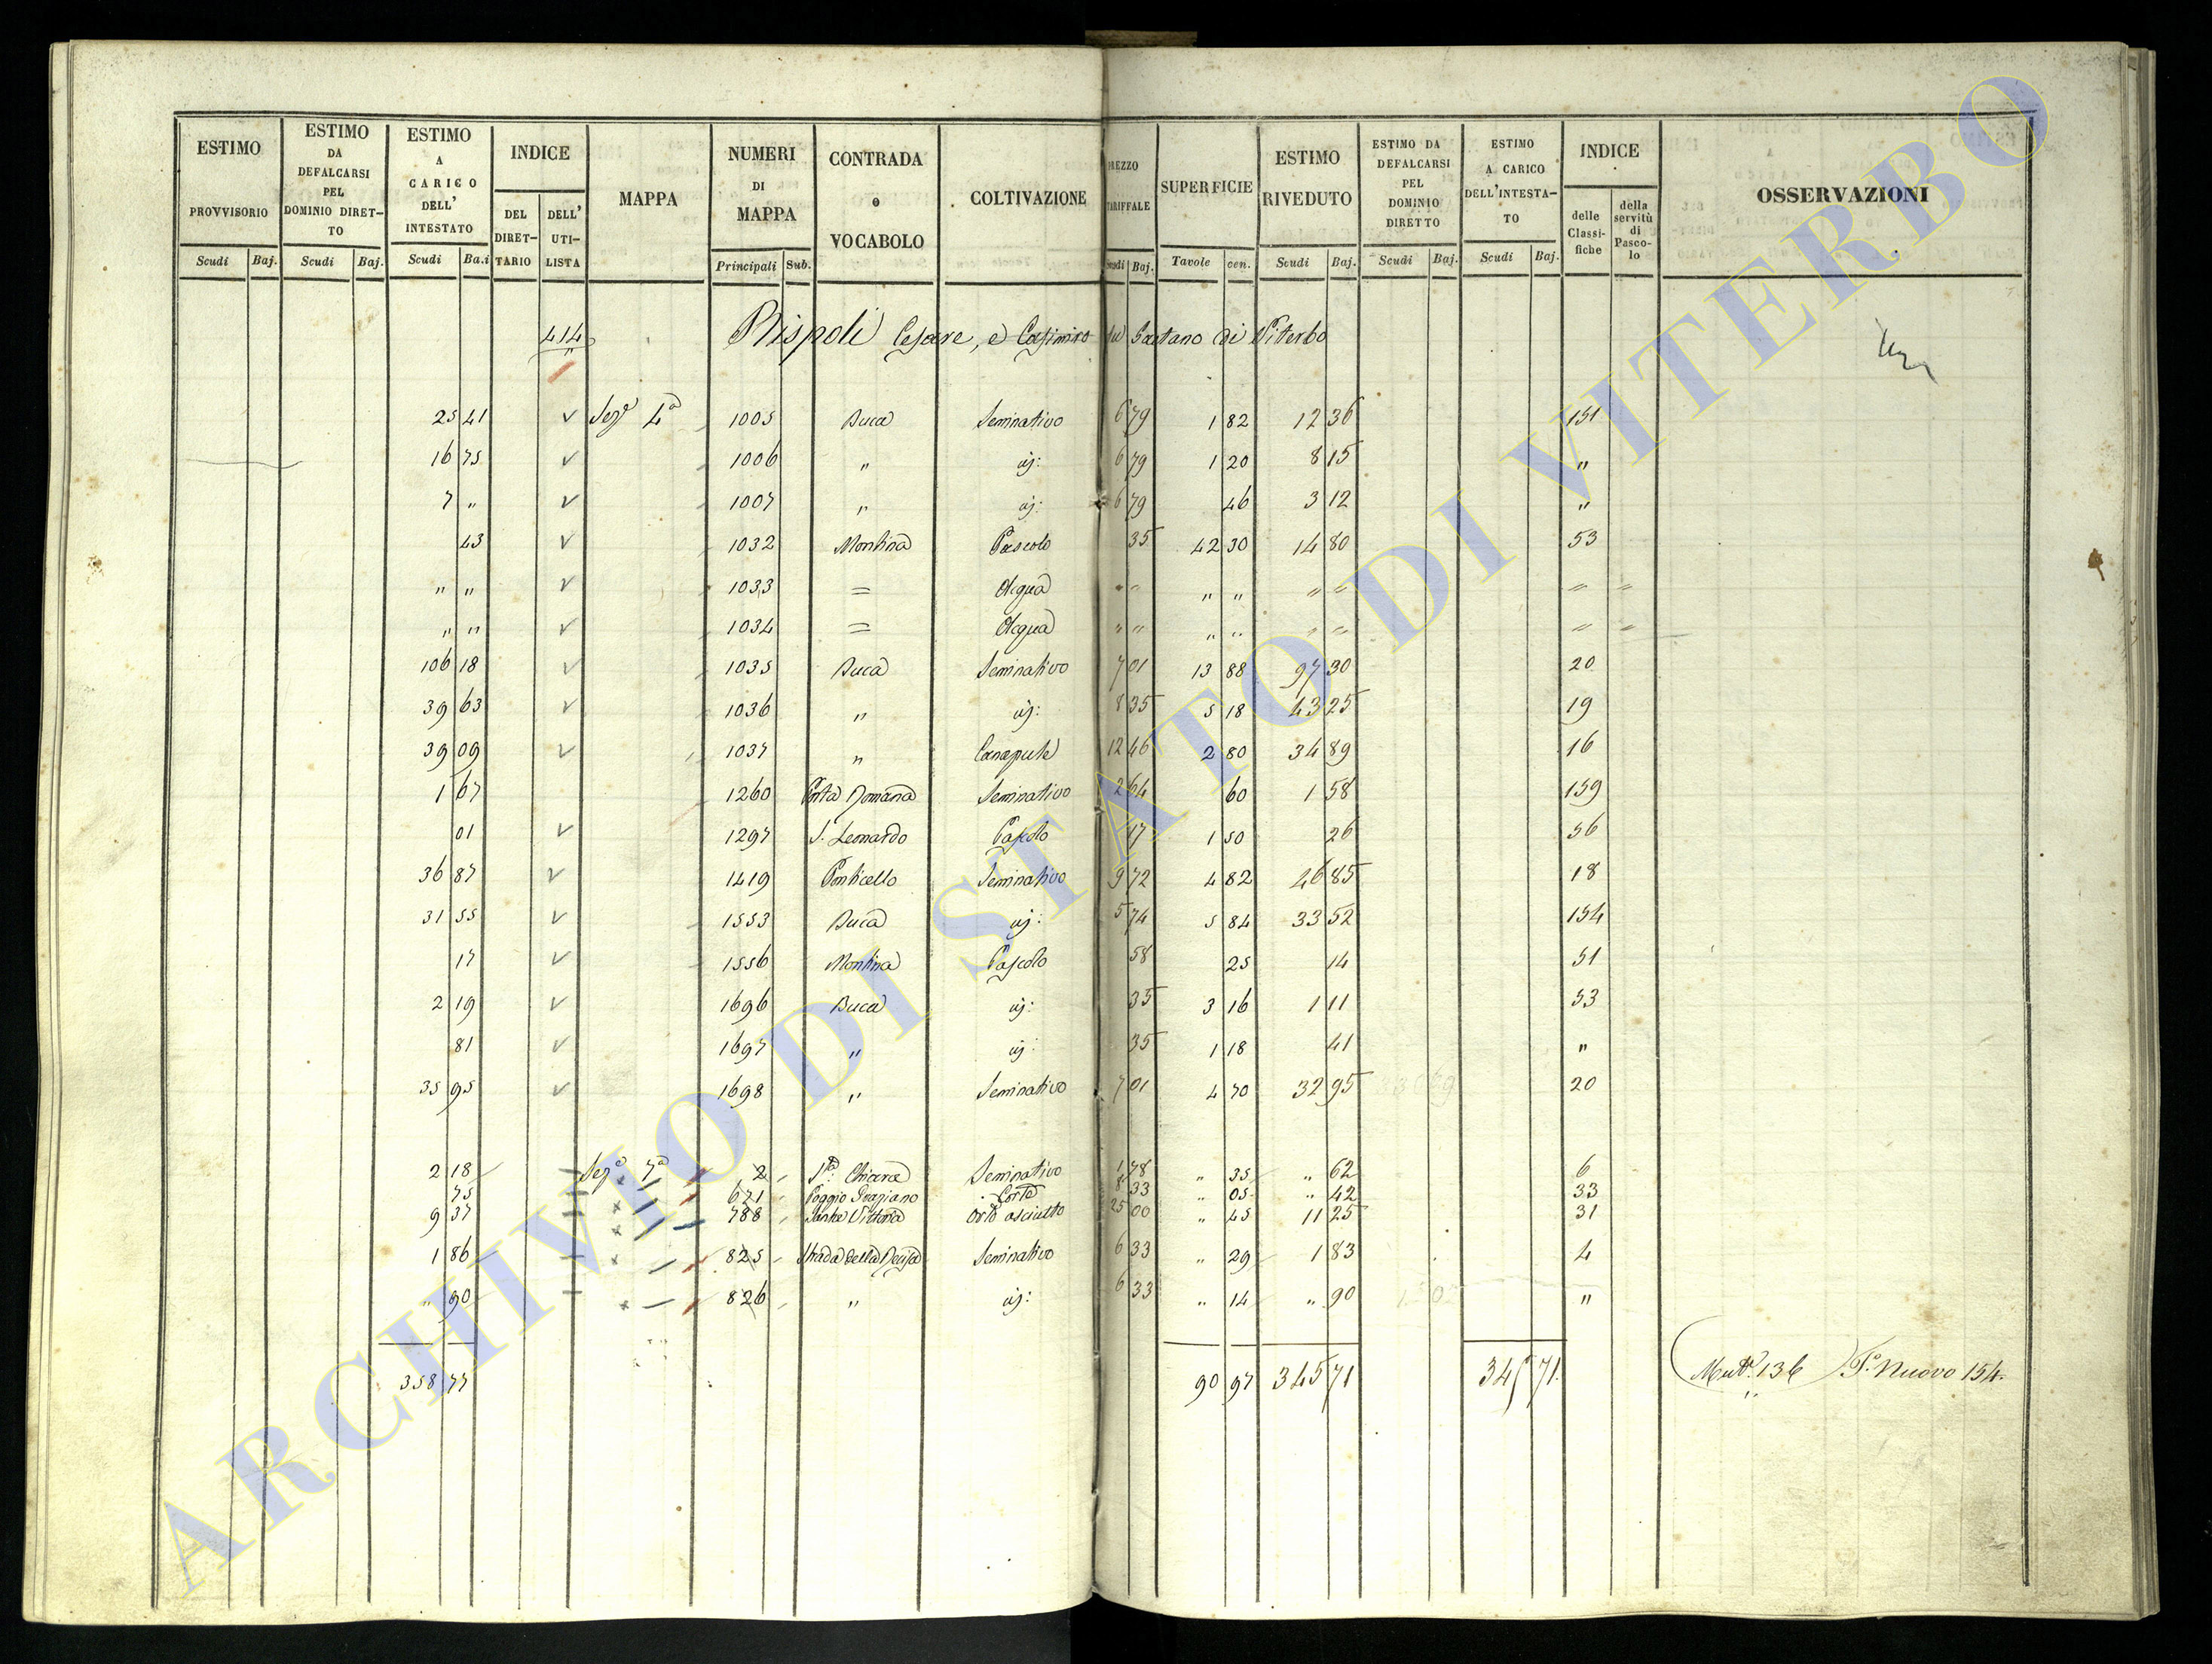 ESTIMO PROVVISORIO Scudi Baj.
ESTIMO DA DEFALCARSI PEL DOMINIO DIRET-TO Scudi Baj.
ESTIMO A CARICO DELL' INTESTATO Scudi Ba.i
INDICE DEL DIRET-TARIO DELL' UTI-LISTA
MAPPA
NUMERI DI MAPPA Principali Sub.
CONTRADA o VOCABOLO
COLTIVAZIONE
PREZZO TARIFFALE Scudi Baj.
SUPERFICIE Tavole cen.
ESTIMO RIVEDUTO Scudi Baj.
ESTIMO DA DEFALCARSI PEL DOMINIO DIRETTO Scudi Baj.
ESTIMO A CARICO DELL'INTESTA-TO Scudi Baj.
INDICE delle Classi-fiche della servitù di Pasco-lo
OSSERVAZIONI
414 Rispoli Cesare, e Casimiro fu Gaetano di Viterbo
25 41 Sez.e 4a 1005 Buca Seminativo 6 79 1 82 12 36 151
16 75 1006 " id: 6 79 1 20 8 15 "
7 " 1007 " id: 6 79 46 3 12 "
43 1032 Montina Pascolo 35 42 30 14 80 53
" " 1033 = Acqua " " " " " " " "
" " 1034 = Acqua " " " " " " " "
106 18 1035 Buca Seminativo 7 01 13 88 97 30 20
39 63 1036 " id: 8 35 5 18 43 25 19
39 09 1037 " Canapule 12 46 2 80 34 89 16
1 67 1260 Porta Romana Seminativo 2 64 60 1 58 159
01 1297 S. Leonardo Pascolo 17 1 50 26 56
36 87 1419 Ponticello Seminativo 9 72 4 82 46 85 18
31 55 1553 Buca id: 5 74 5 84 33 52 154
17 1556 Montina Pascolo 58 25 14 51
2 19 1696 Buca id: 35 3 16 1 11 53
81 1697 " id: 35 1 18 41 "
35 95 1698 " Seminativo 7 01 4 70 32 95 20
2 18 Sez.e 7a 2 S.ta Chiara Seminativo 1 78 " 35 " 62 6
75 671 Poggio Graziano Corte 8 33 " 05 " 42 33
9 37 788 Santa Vittoria Orto asciutto 25 00 " 45 11 25 31
1 86 825 Strada della Seminativo 6 33 " 29 1 83 4
" 90 826 " id: 6 33 " 14 " 90 "
358 77 90 97 345 71 345 71 Mut.a 136 P.a Nuovo 154.
ARCHIVIO DI STATO DI VITERBO